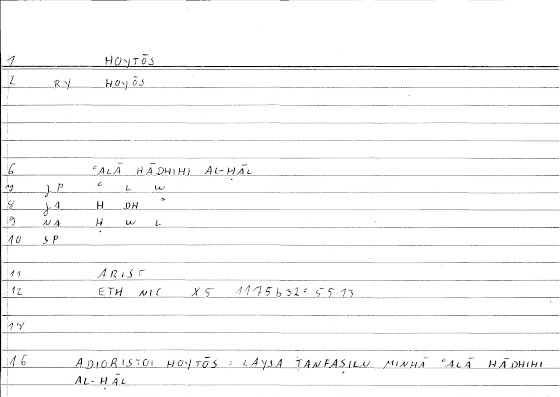 1 HOYTŌS
2 RY HOYŌS
6 ʿALĀ HĀDHIHI AL-ḤĀL
7 JP ʿ L W
8 JA H DH °
9 NA Ḥ W L
10 SP
11 ARIST
12 ETH NIC X5 1175b32: 55.13
14
16 ADIORISTOI HOYTŌS : LAYSA TANFAṢILU MINHĀ ʿALĀ HĀDHIHI
AL-ḤĀL